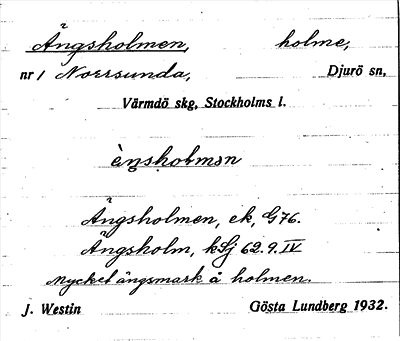 Ängsholmen, holme,
nr 1 Norrsunda, Djurö sn,
Värmdö skg, Stockholms l.
èŋsholmən
Ängsholmen, ek, G76.
Ängsholm, kSj 62.9.IV
Mycket ängsmark å holmen.
J. Westin Gösta Lundberg 1932.